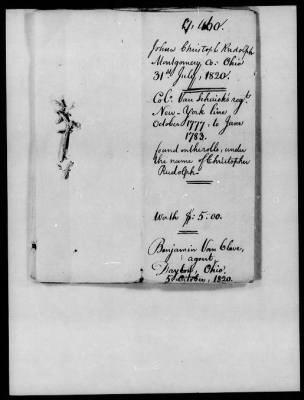 Johan Christoph Rudolph
Montgomery, Co: Ohio
31st July, 1820.
Col. Van Schaick's regt
New-York line
October 1777, to June
1783.
found on the rolls, under
the name of Christopher
Rudolph
Worth $: 5.00.
Benjamin Van Cleve,
agent,
Dayton, Ohio.
5 October, 1820.